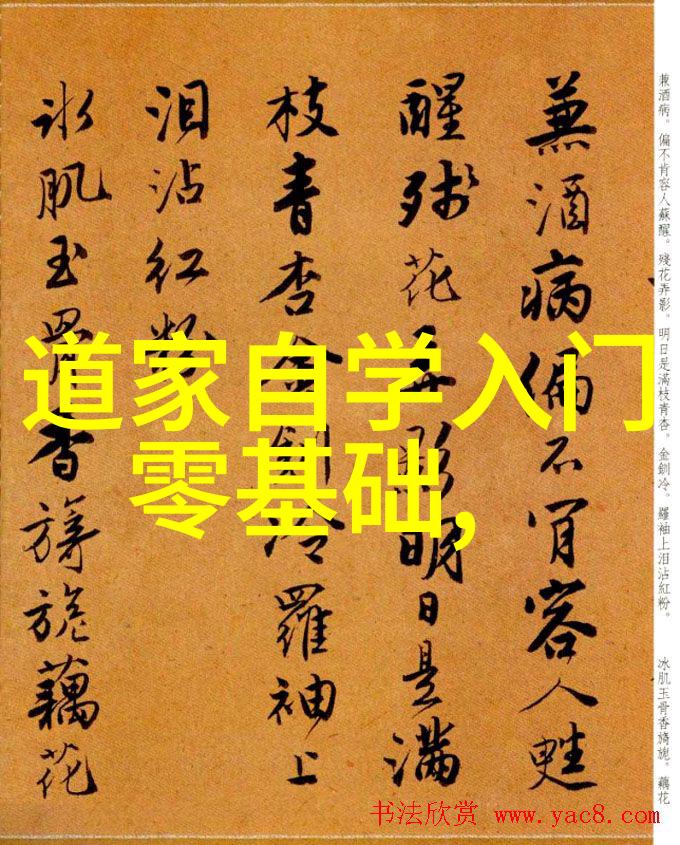 蒹酒病偏不肯容人甦
醒殘花弄影明日是滿
枝青杏金釧冷羅袖上
泪沾红粉
冰肌玉骨香旖旎藕花
兼酒病。偏不肯容人蘇醒。殘花弄影。明日是滿枝青杏。金釧冷。羅袖上泪沾紅粉。
冰肌玉骨香旖旎。藕花
道家自学入门
零基础,
书法欣赏 www.yac8.com